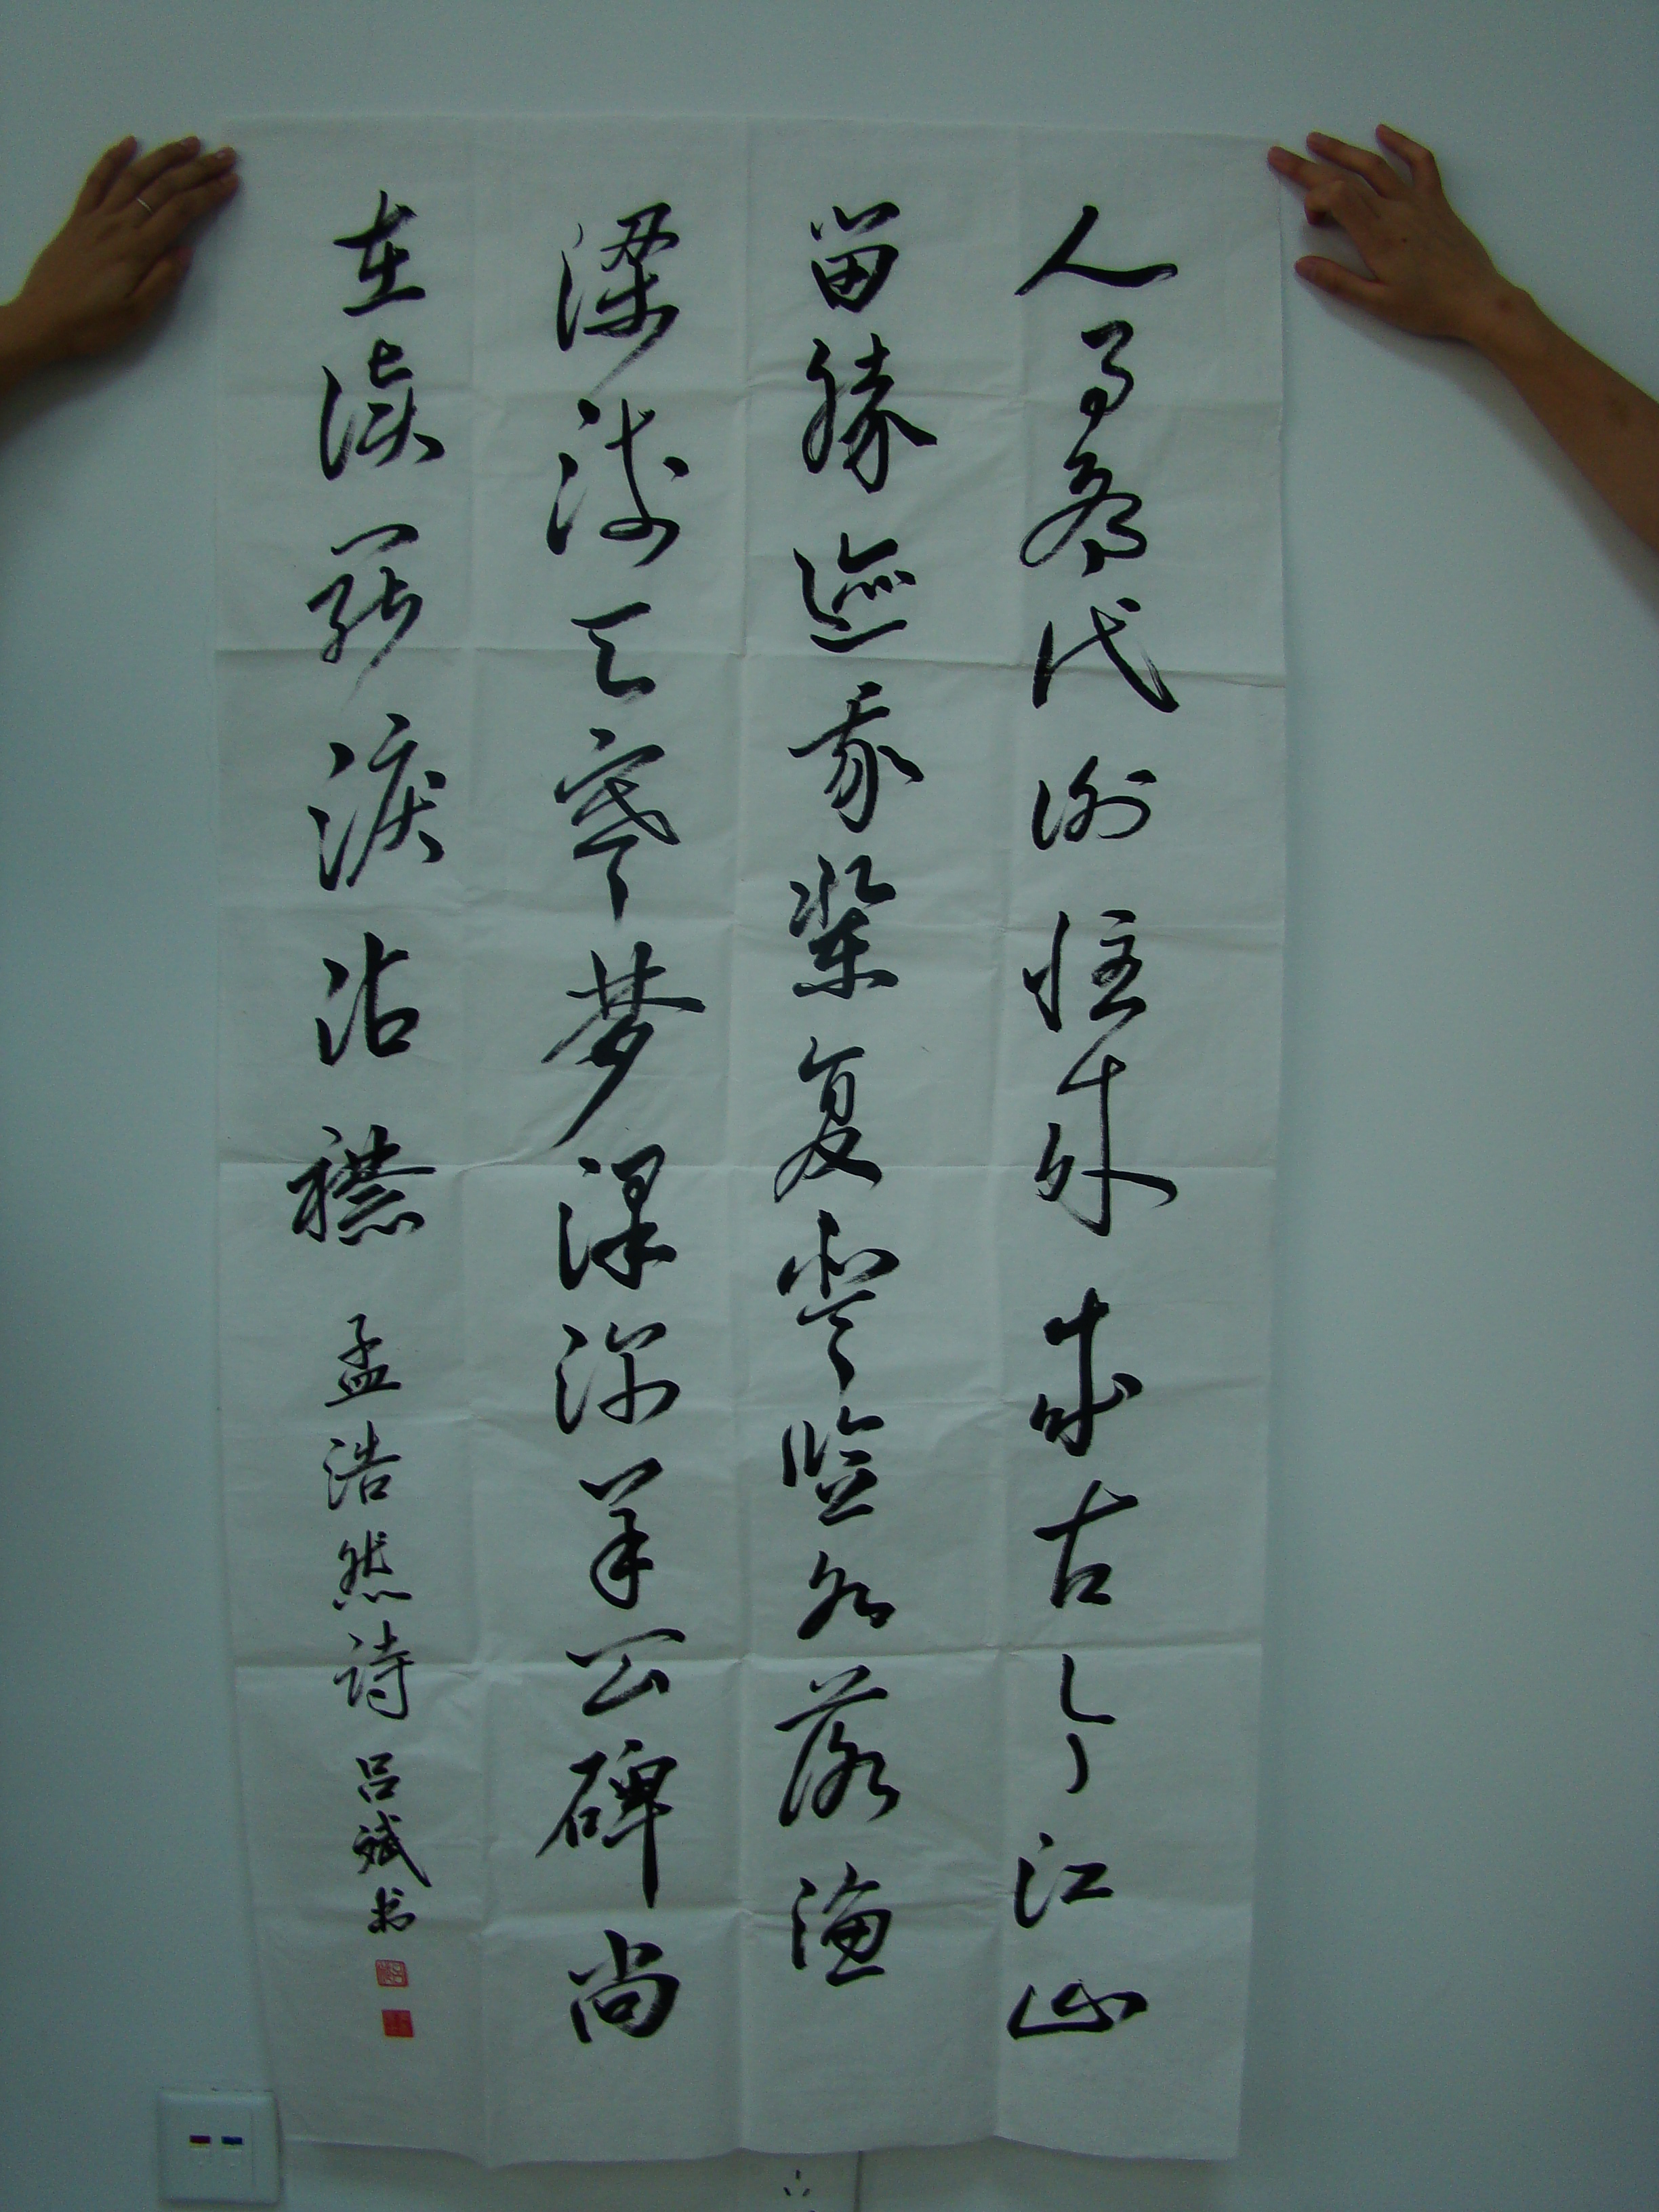 人事為代谢往来成古今江山
留勝迹我辈复登临水落渔
梁浅天寒梦泽深羊公碑尚
在读罢淚沾襟 孟浩然诗 吕斌书